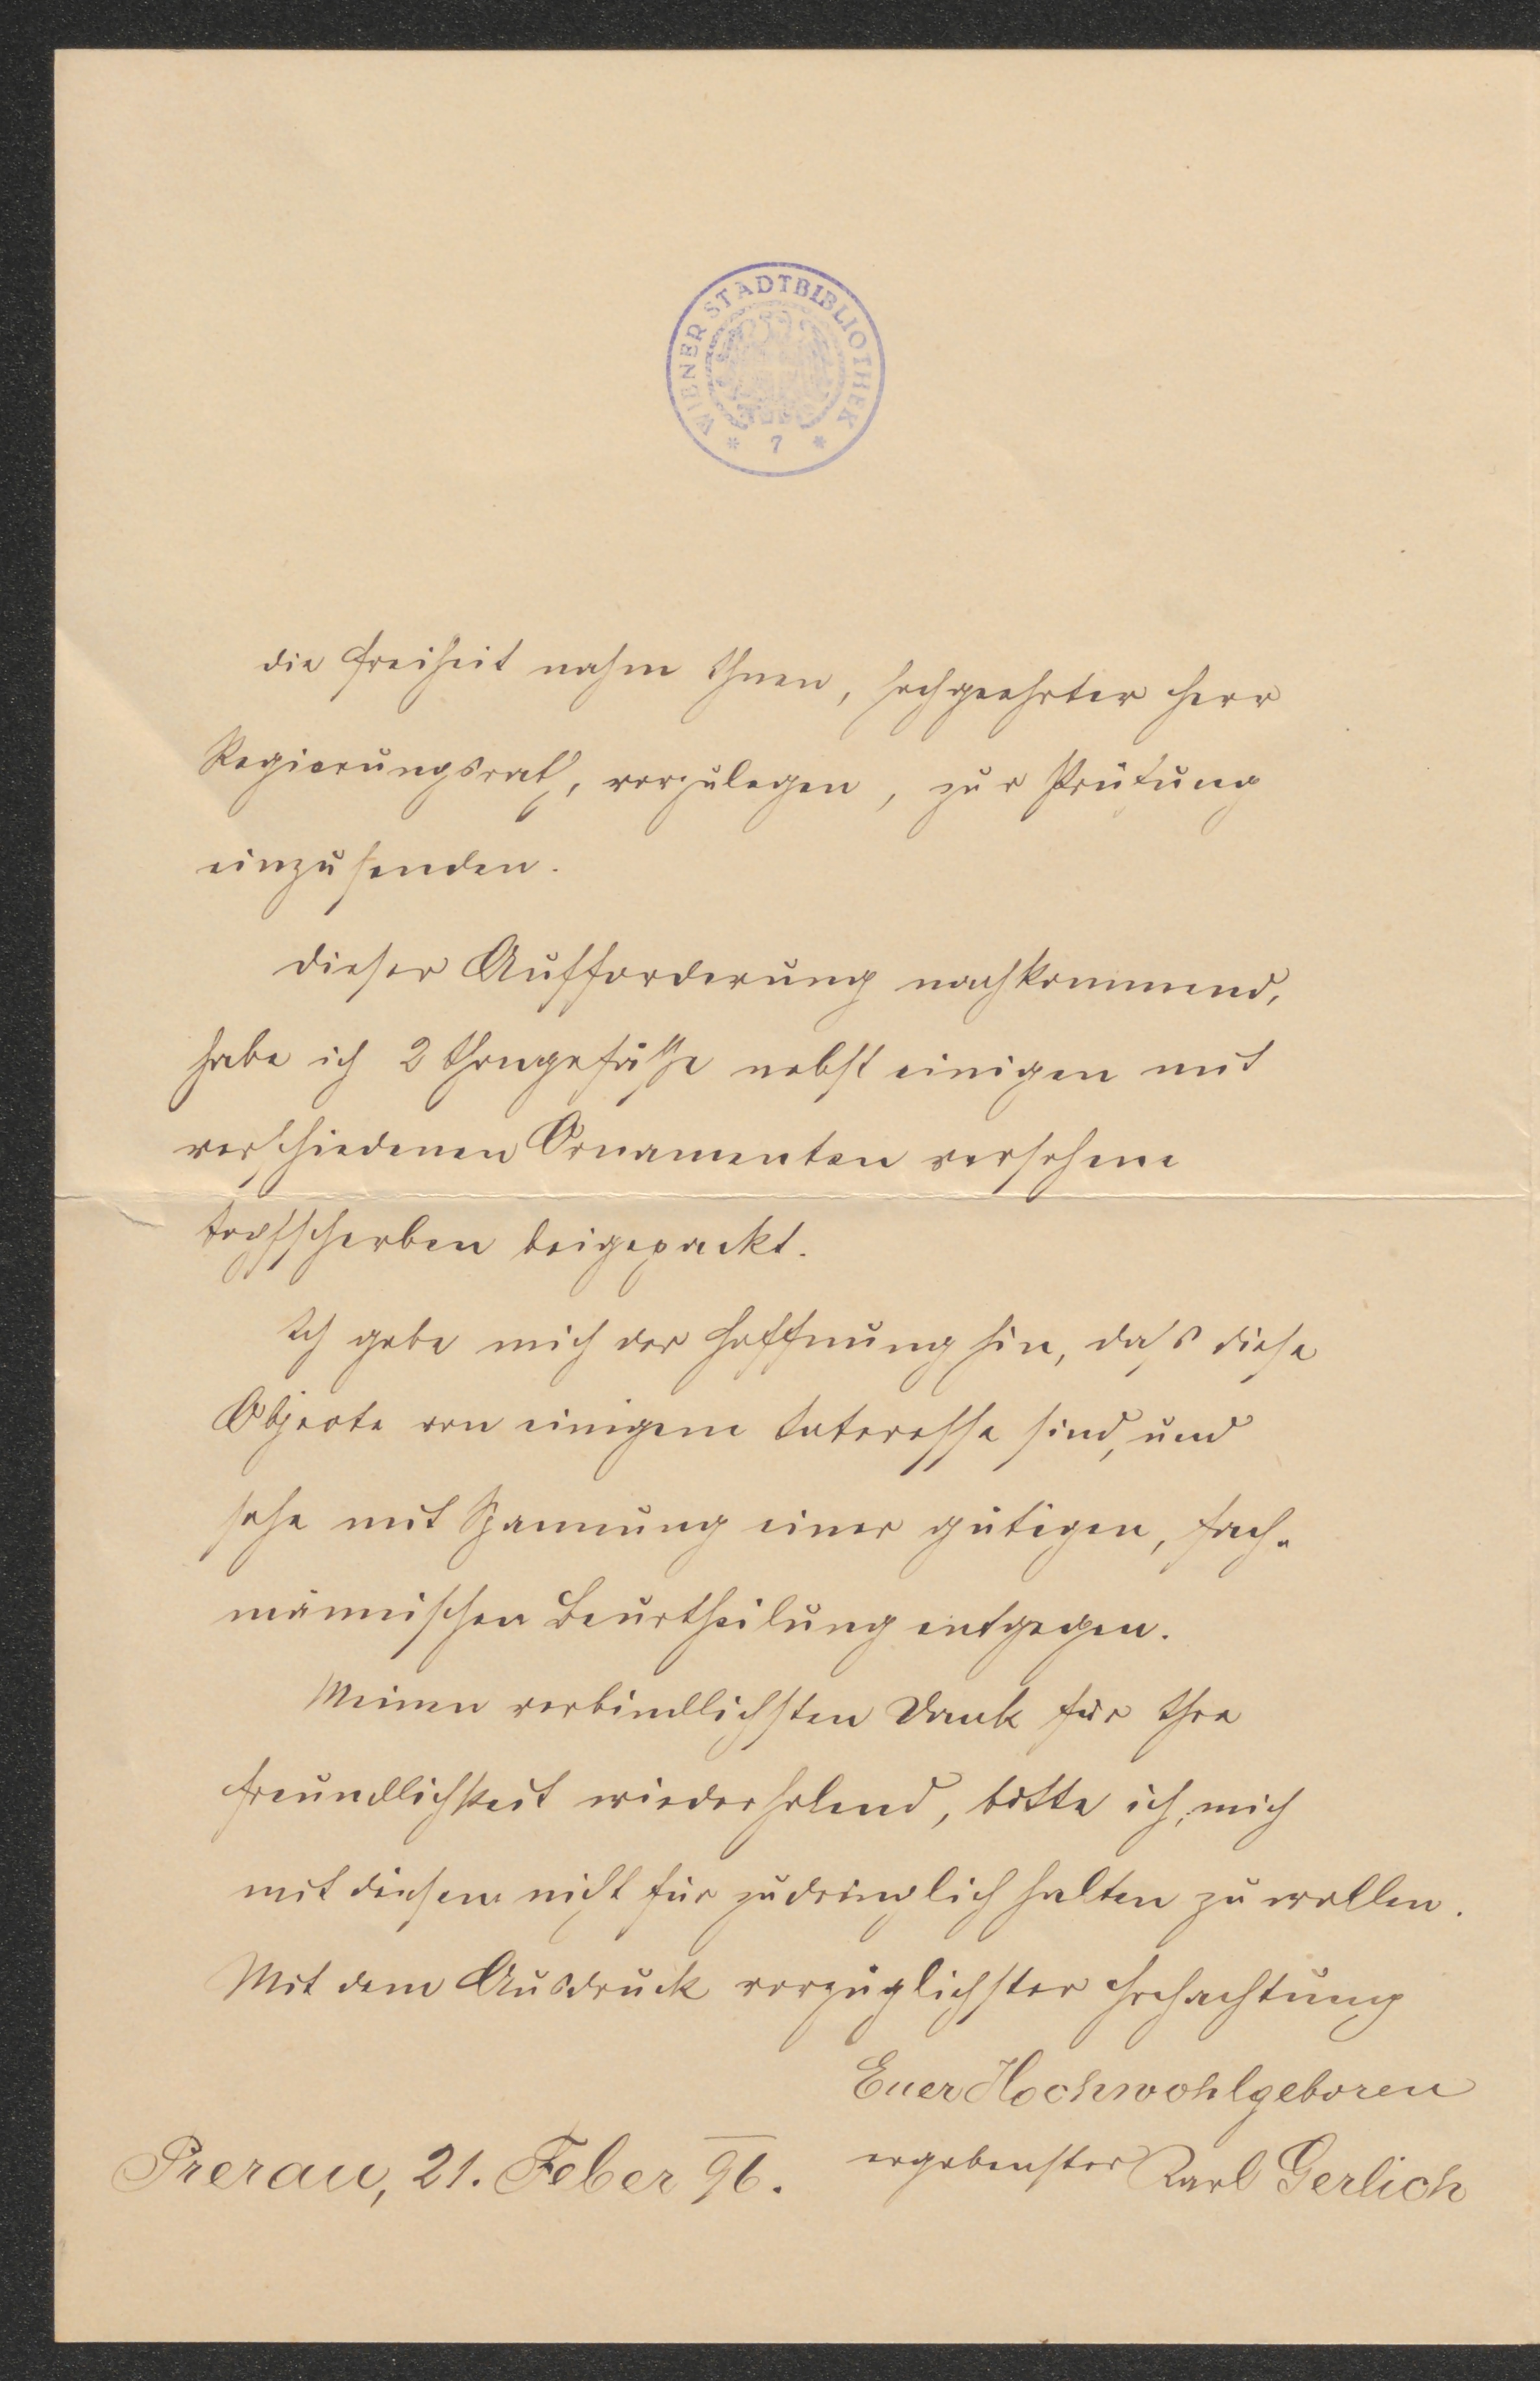 WIENER STADTBIBLIOTHEK
* 7 *
die Freiheit nahm Ihnen, hochgeehrter Herr
Regierungsrath, vorzulegen, zur Prüfung
einzusenden.
Dieser Aufforderung nachkommend,
habe ich 2 Thongefäße nebst einigen mit
verschiedenen Ornamenten versehene
Topfscherben beigepackt.
Ich gebe mich der Hoffnung hin, dass diese
Objecte von einigem Interesse sind, und
sehe mit Spannung einer gütigen, fach-
männischen Beurtheilung entgegen.
Meinen verbindlichsten Dank für Ihre
Freundlichkeit wiederholend, bitte ich, mich
mit diesem nicht für zudringlich halten zu wollen.
Mit dem Ausdruck vorzüglichster Hochachtung
Euer Hochwohlgeboren
ergebenster Karl Gerlich
Prerau, 21. Feber 96.